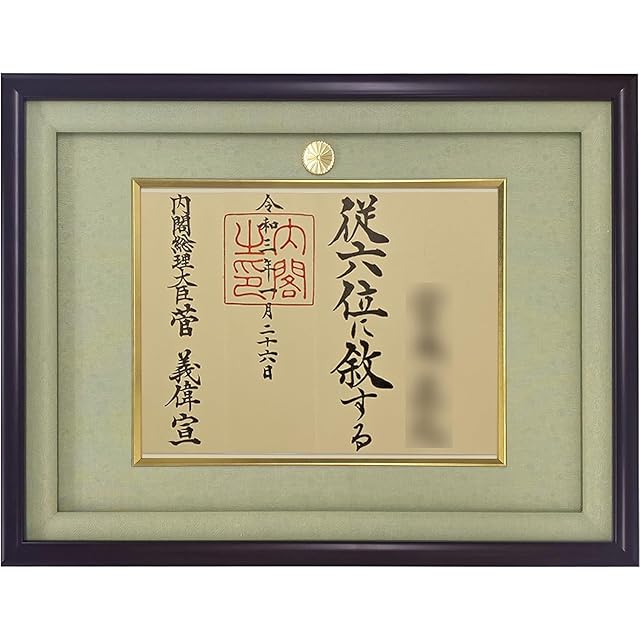 従六位に敘する
令和三年一月二十六日
内閣之印
内閣総理大臣菅 義偉宣